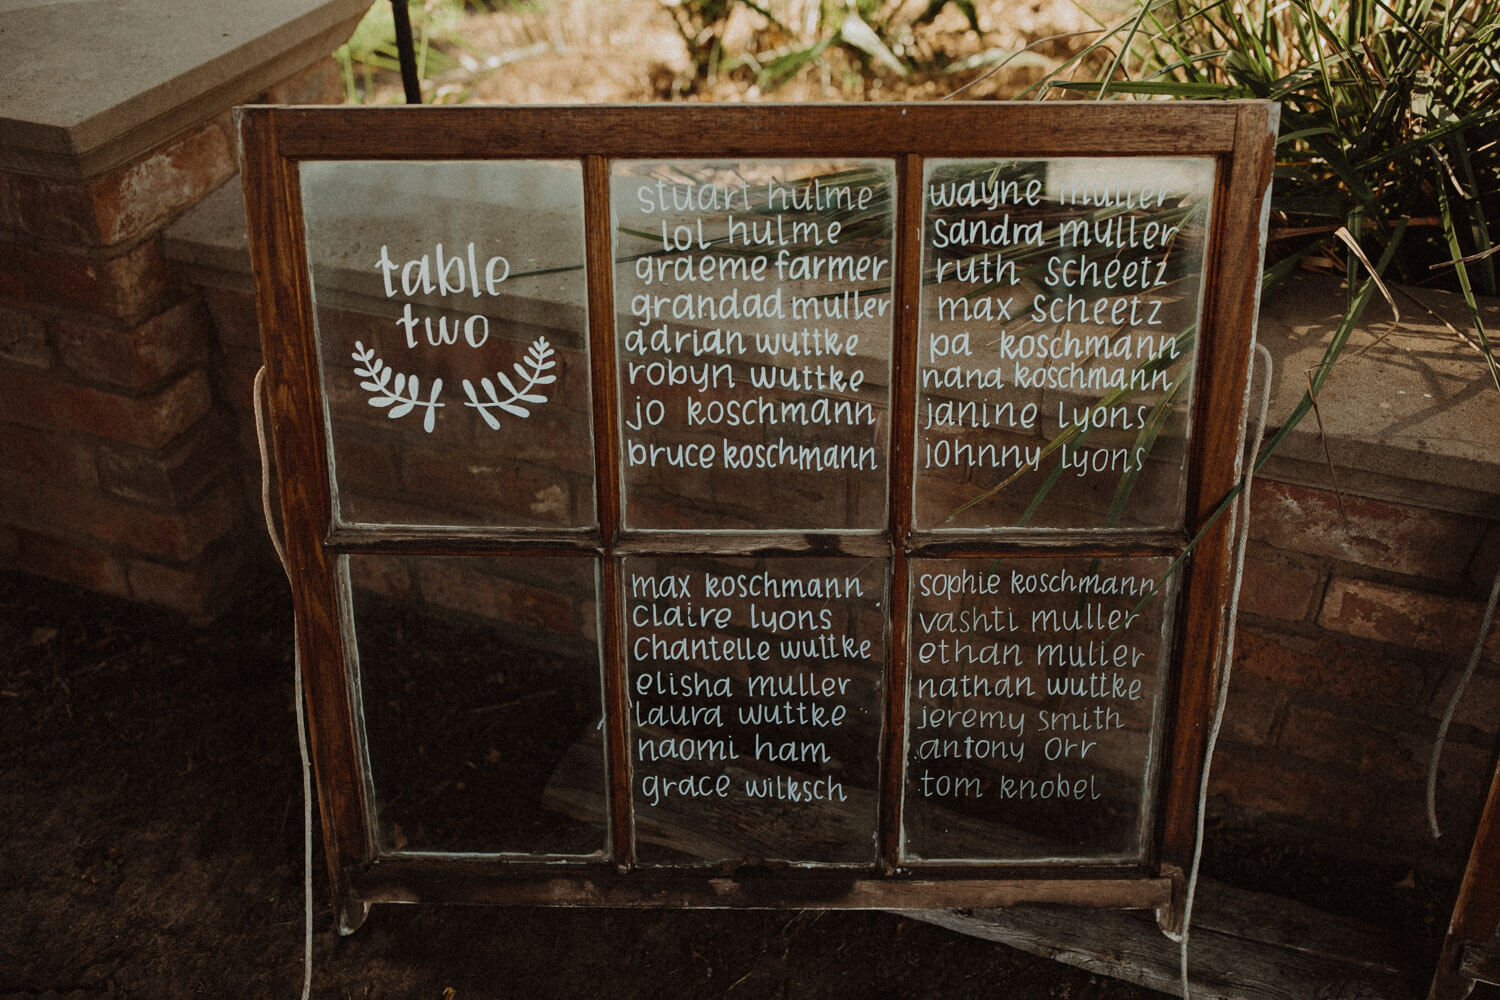 table
two
stuart hulme
lol hulme
graeme farmer
grandad muller
adrian wuttke
robyn wuttke
jo koschmann
bruce koschmann
wayne muller
sandra muller
ruth scheetz
max scheetz
pa koschmann
nana koschmann
janine lyons
johnny lyons
max koschmann
claire lyons
chantelle wuttke
elisha muller
laura wuttke
naomi ham
grace wilksch
sophie koschmann
vashti muller
ethan muller
nathan wuttke
jeremy smith
antony orr
tom knobel